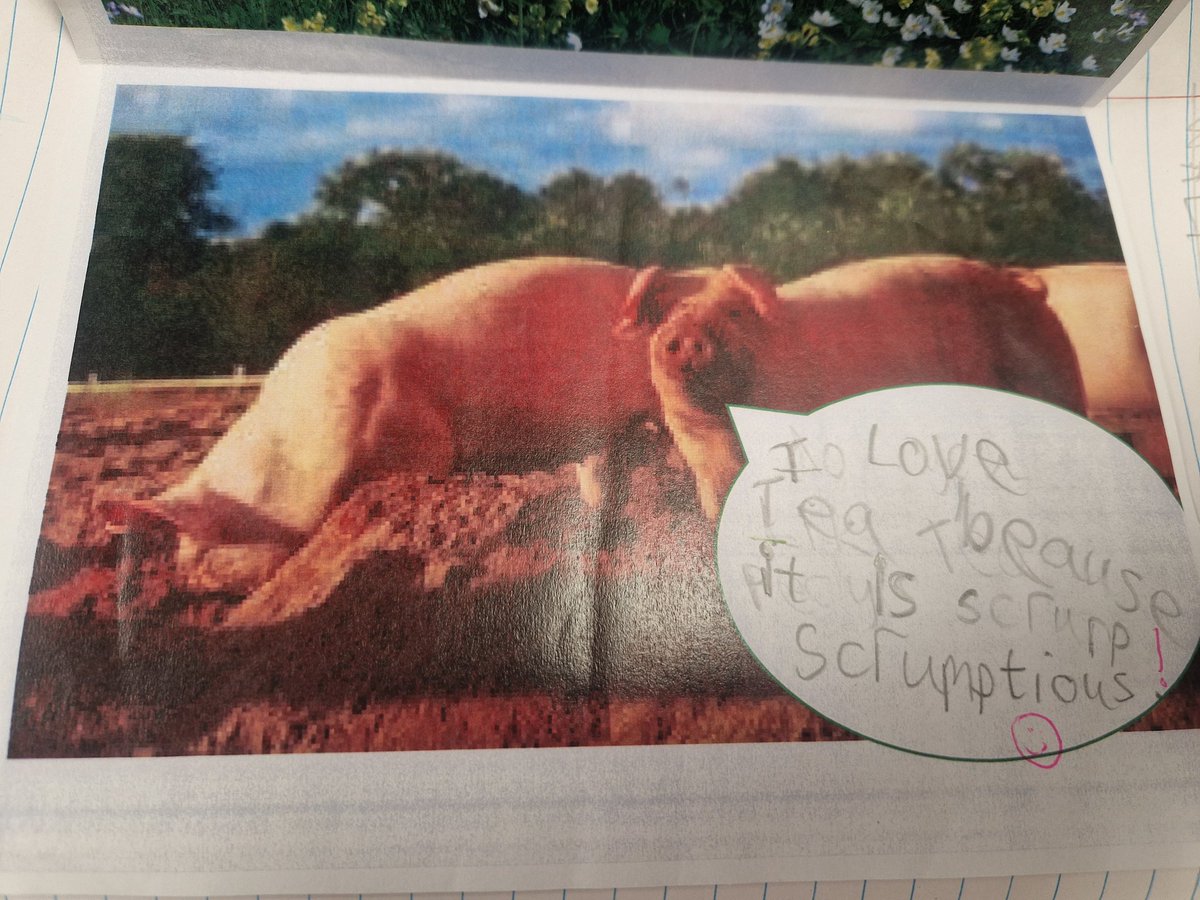 I Love
Tea beause
it is scrump
Scrumptious!